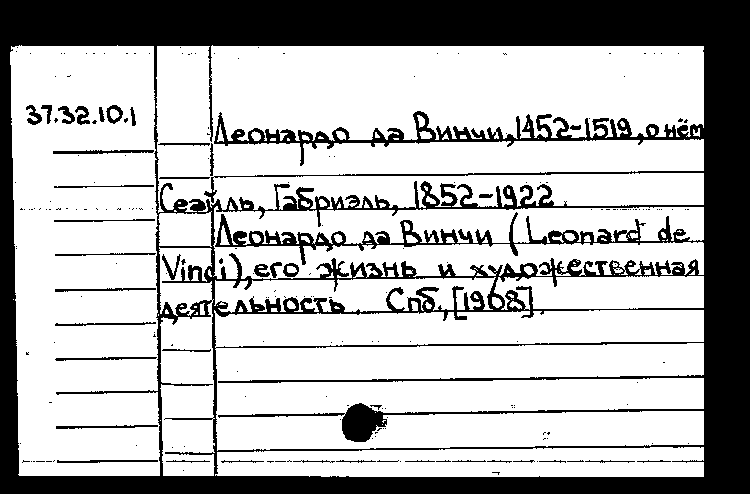 37.32.10.1
Леонардо да Винчи, 1452-1519, о нём
Сеайль, Габриэль, 1852-1922.
Леонардо да Винчи (Leonard de
Vinci), его жизнь и художественная
деятельность. Спб., [1908].